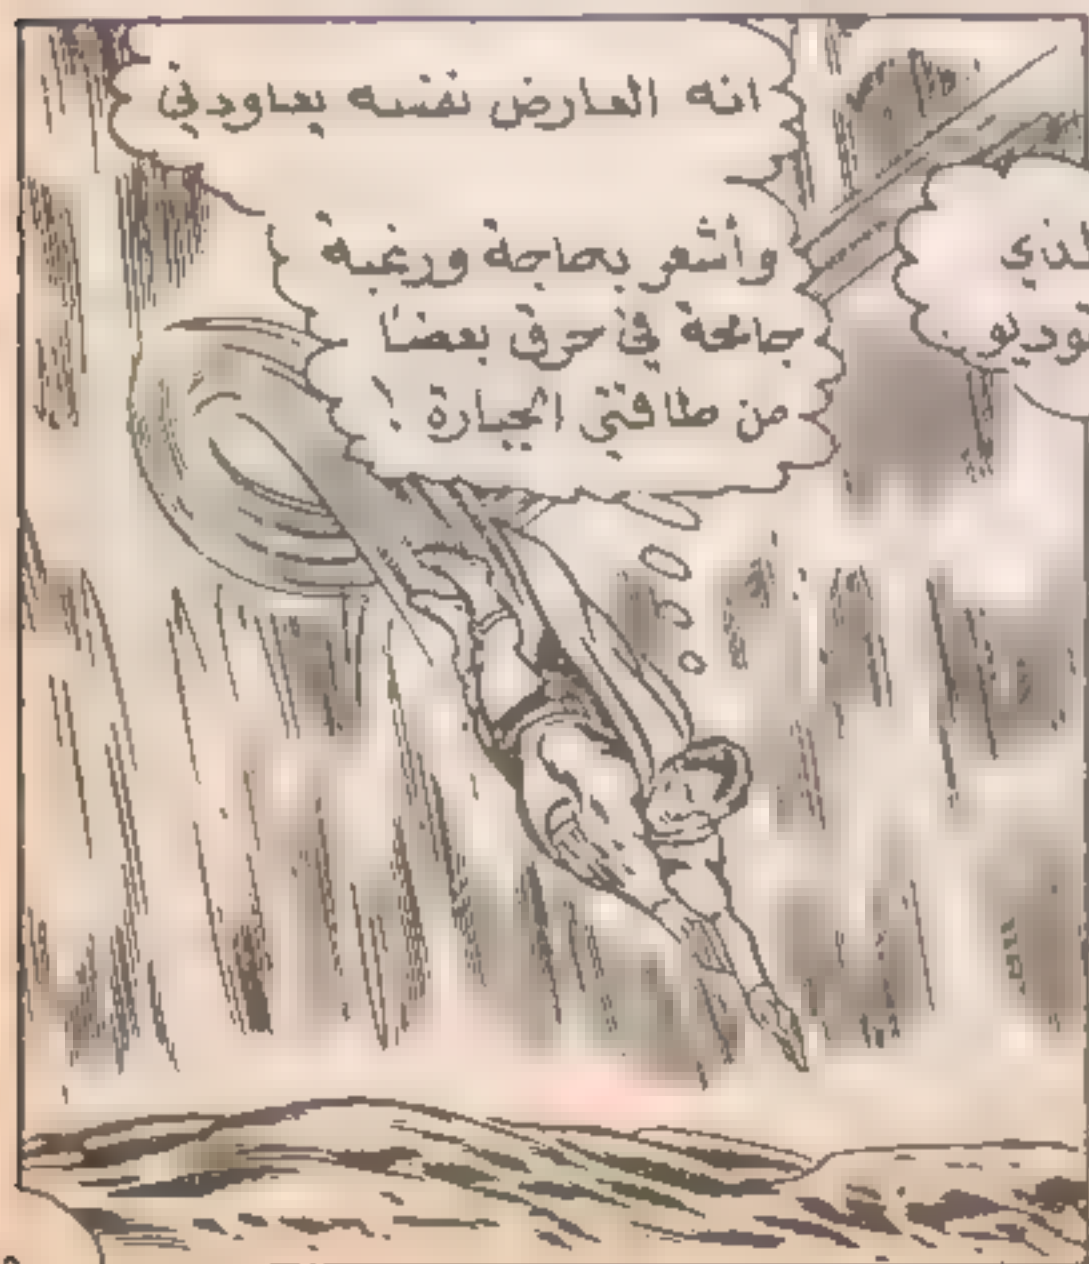 انه العارض نفسه يعاودني
وأشعر بحاجة ورغبة
جامحة في حرق بعضا
من طاقتي الجبارة !
لذي